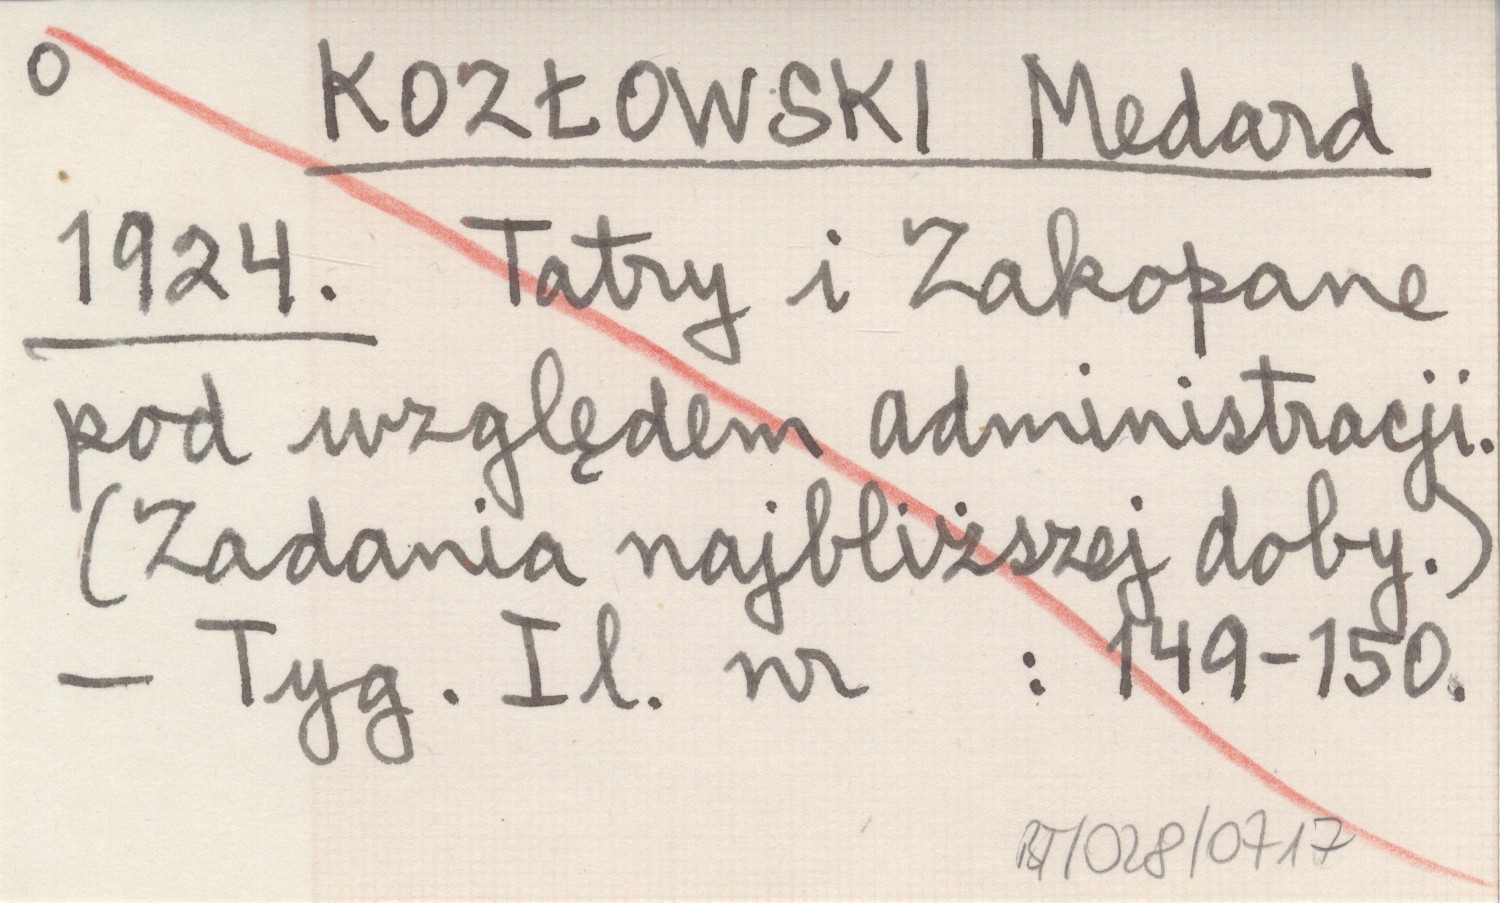 o KOZŁOWSKI Medard
1924. Tatry i Zakopane
pod względem administracji.
(Zadania najbliższej doby.)
— Tyg. Il. nr : 149-150.
BT/028/0717